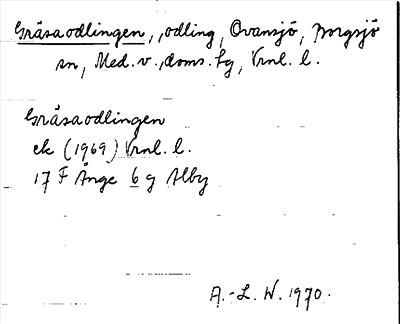 Gråsaodlingen, odling, Ovansjö, Borgsjö
sn, Med. v., doms. hg, Vrnl. l.
Gråsaodlingen
ek (1969) Vrnl. l.
17 F Ånge 6 g Alby
A.-L. W. 1970.